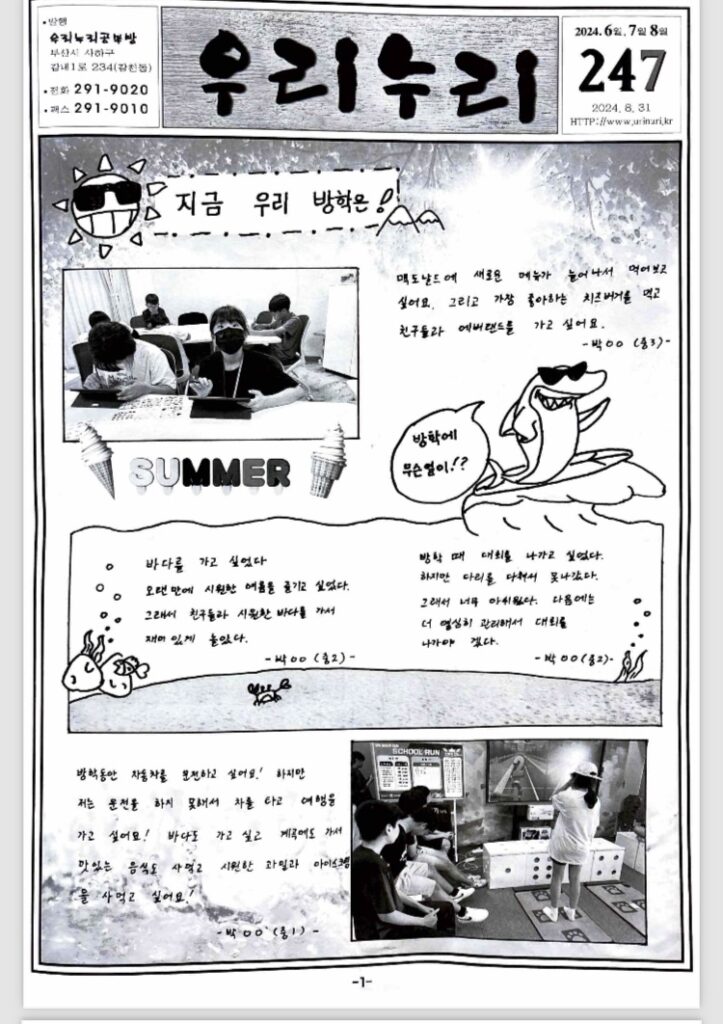 •발행
우리누리공부방
부산시 사하구
감내1로 234(감천동)
•전화 291-9020
•팩스 291-9010
우리누리
2024. 6월, 7월 8월
247
2024. 8. 31
HTTP://www.urinuri.kr
지금 우리 방학은!
맥도날드에 새로운 메뉴가 늘어나서 먹어보고
싶어요. 그리고 가장 좋아하는 치즈버거를 먹고
친구들과 에버랜드를 가고 싶어요.
-박○○ (중3)-
SUMMER
방학에
무슨일이!?
바다를 가고 싶었다
오랜만에 시원한 여름을 즐기고 싶었다.
그래서 친구들과 시원한 바다를 가서
재미있게 놀았다.
-박○○ (중2)-
방학 때 대회를 나가고 싶었다.
하지만 다리를 다쳐서 못나갔다.
그래서 너무 아쉬웠다. 다음에는
더 열심히 관리해서 대회를
나가야 겠다.
-박○○ (중2)-
방학동안 자동차를 운전하고 싶어요! 하지만
저는 운전을 하지 못해서 차를 타고 여행을
가고 싶어요! 바다도 가고 싶고 계곡에도 가서
맛있는 음식도 사먹고 시원한 과일과 아이스크림
을 사먹고 싶어요!
-박○○ (중1)-
SCHOOL RUN
-1-